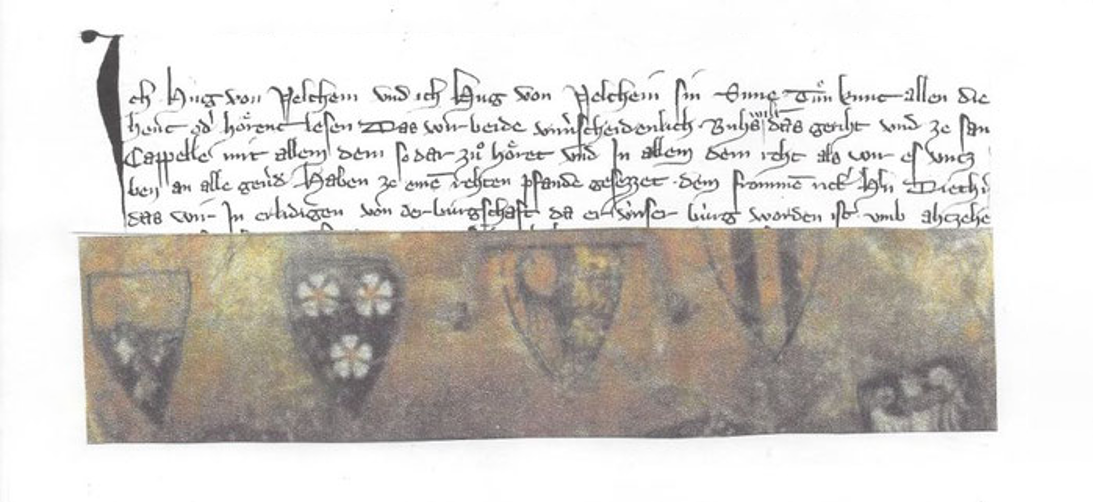 Ich Hug von Velchein vnd ich Hug von Velchein sin Sune Tuͦn kunt allen die
hent od hoͤrent lesen Das wir beide vnuscheidenlich das geriht vnd ze san
Cappelle mit allem dem so dar zuͦ hoͤret vnd In allem dem reht als wir es vntz
ben an alle geud Haben ze eine rehten pfande gesezzet dem fromme
das wir In erlidigen von der burgschaft da er vnser burg worden ist vmb ahzehe